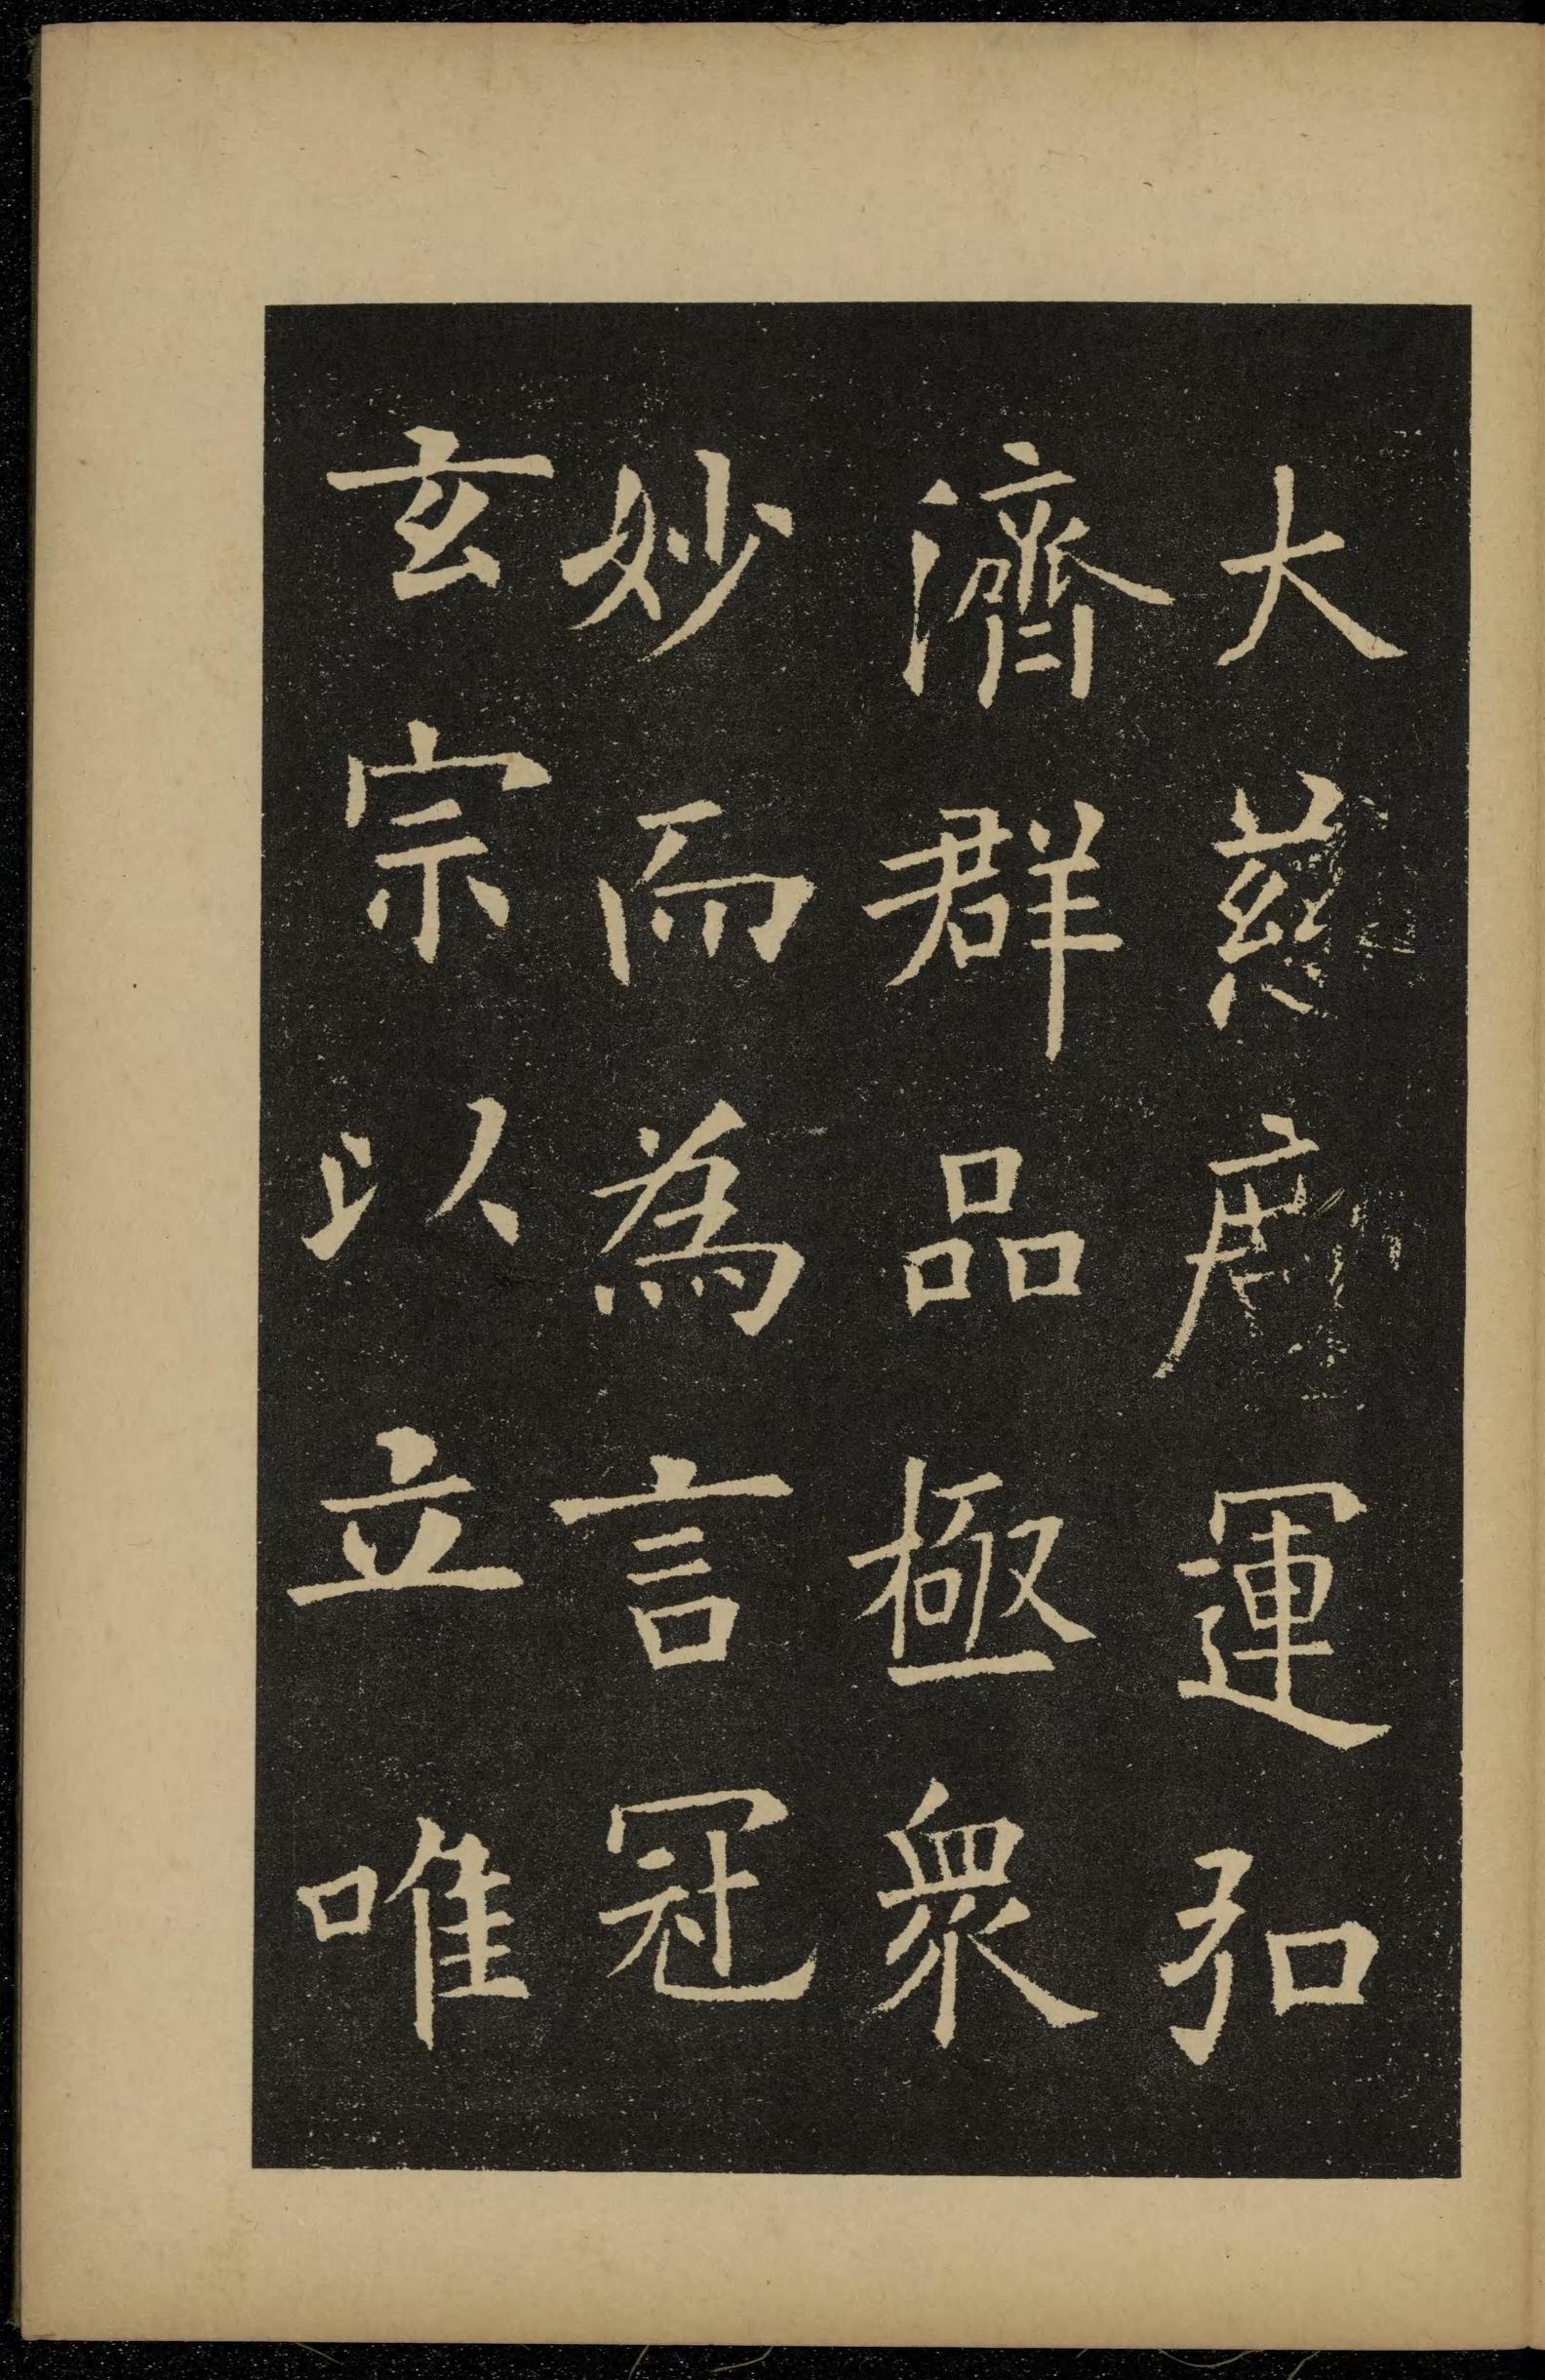 大慈廣運弘
濟群品極眾
妙而為言冠
玄宗以立唯